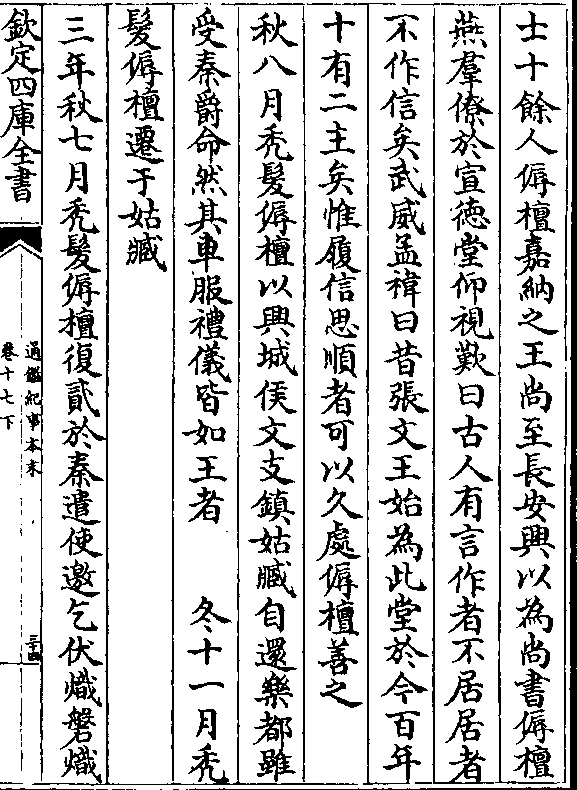 士十餘人傉檀嘉納之王尚至長安興以為尚書傉檀
燕羣僚於宣德堂仰視歎曰古人有言作者不居居者
不作信矣武威孟禕曰昔張文王始為此堂於今百年
十有二主矣惟履信思順者可以久處傉檀善之
秋八月秃髮傉檀以興城侯文支鎮姑臧自還樂都雖
受秦爵命然其車服禮儀皆如王者 冬十一月秃
髮傉檀遷于姑臧
三年秋七月秃髮傉檀復貳於秦遣使邀乞伏熾磐熾
欽定四庫全書
通鑑紀事本末
卷十七下
三十四